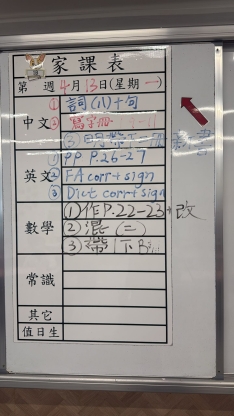 家課表
第 週 4月13日(星期一)
中文
① 詞(八)+句
② 寫字冊 9-11
③
英文
① PP P.26-27
② FA corr+sign
③ Dict corr+sign
數學
① 作P.22-23+改
② 混(二)
③ 帶1下B
常識
其它
值日生